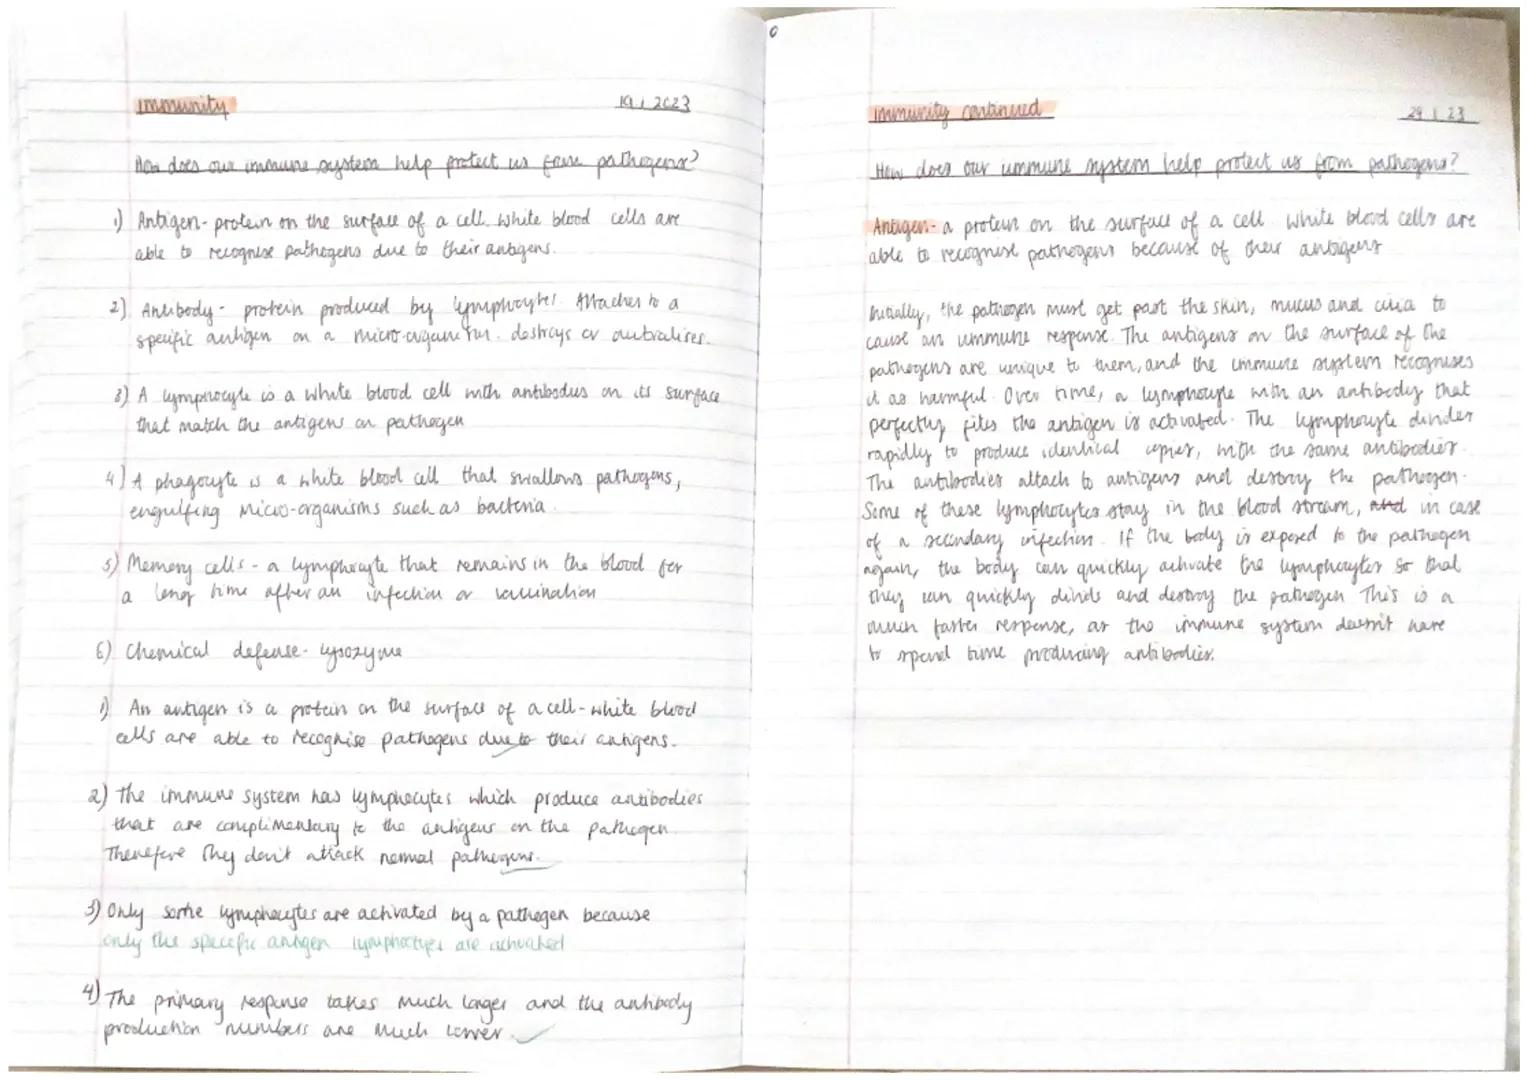 Immunity
19.1.2023
How does our immune system help protect us from pathogens?
1) Antigen - protein on the surface of a cell. White blood cells are
able to recognise pathogens due to their antigens.
2) Antibody - protein produced by lymphocytes. Attaches to a
specific antigen on a micro-organism. destroys or
3) A lymphocyte is a white blood cell with antibodies on its surface
that match the antigens on pathogen
4) A phagocyte is a white blood cell that swallows pathogens,
engulfing micro-organisms such as bacteria.
5) Memory cells - a lymphocyte that remains in the blood for
a long time after an infection or vaccination
6) Chemical defense - lysozyme
1) An antigen is a protein on the surface of a cell - white blood
cells are able to recognise pathogens due to their antigens.
2) The immune system has lymphocytes which produce antibodies
that are complimentary to the antigens on the pathogen.
Therefore they don't attack normal pathogens.
3) Only some lymphocytes are activated by a pathogen because
only the specific antigen lymphoctyes are activated
4) The primary response takes much longer and the antibody
production numbers are much lower.
Immunity continued
29.1.23
How does our immune system help protect us from pathogens?
Antigen - a protein on the surface of a cell. White blood cells are
able to recognise pathogens because of their antigens
Initially, the pathogen must get past the skin, mucus and cilia to
cause an immune response. The antigens on the surface of the
pathogens are unique to them, and the immune system recognises
it as harmful. Over time, a lymphocyte with an antibody that
perfectly fits the antigen is activated. The lymphocyte divides
rapidly to produce identical copies, with the same antibodies.
The antibodies attach to antigens and destroy the pathogen.
Some of these lymphocytes stay in the blood stream, and in case
of a secondary infection. If the body is exposed to the pathogen
again, the body can quickly activate the lymphocytes so that
they can quickly divide and destroy the pathogen This is a
much faster response, as the immune system doesn't have
to spend time producing antibodies.